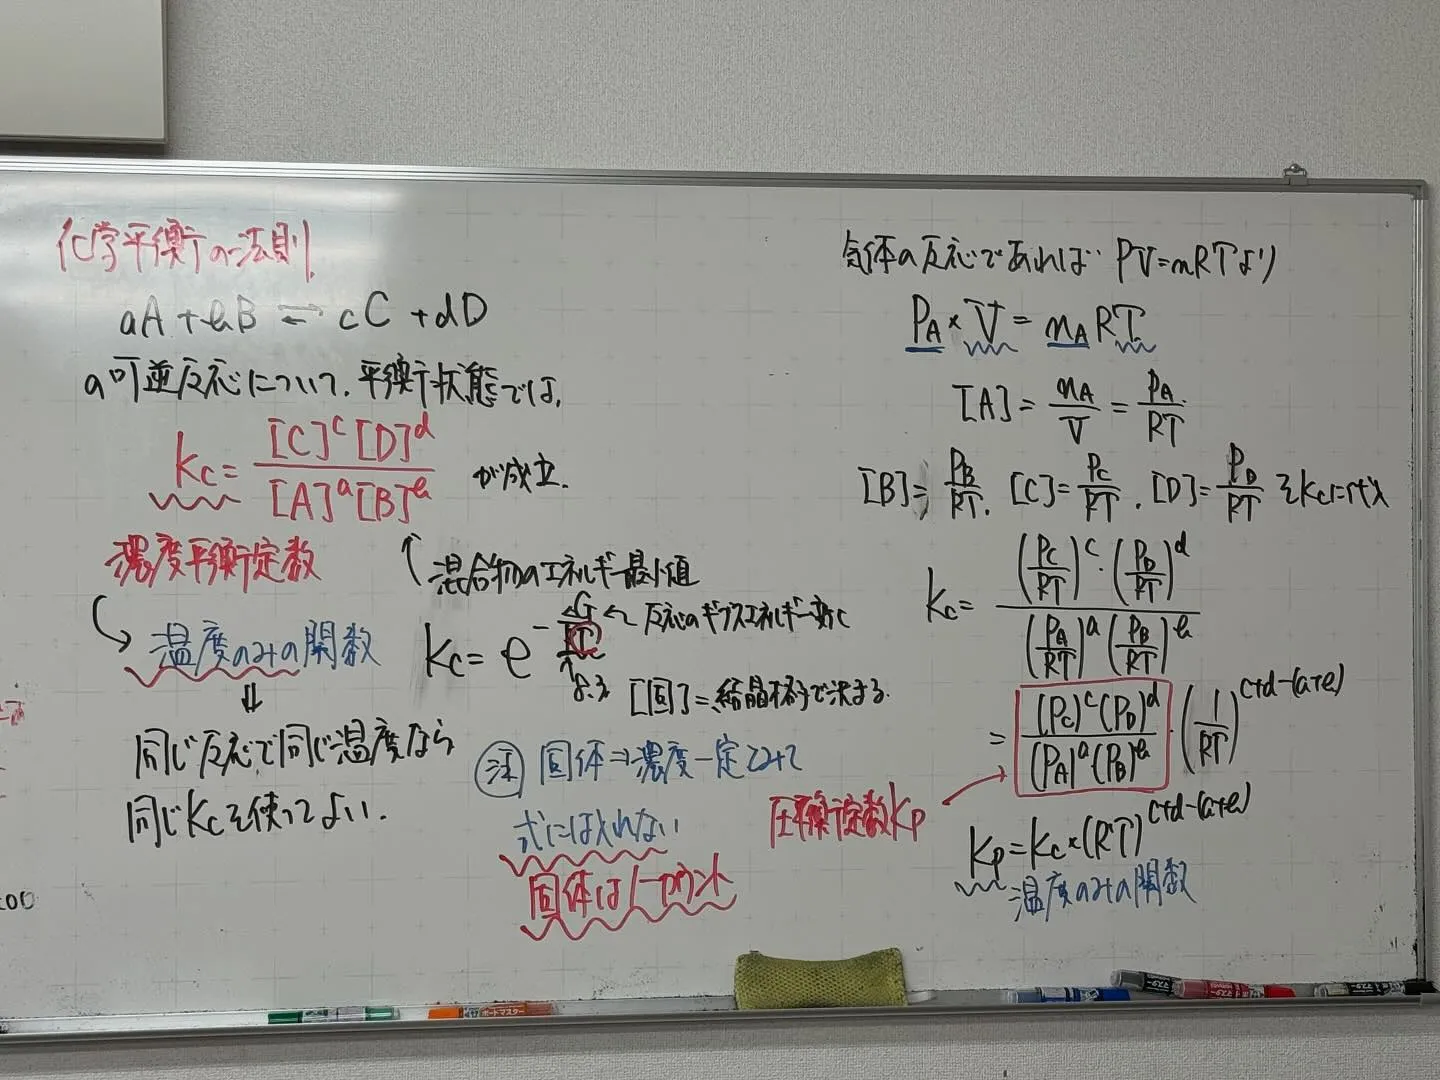 化学平衡の法則
aA + bB ⇄ cC + dD
の可逆反応について、平衡状態では、
Kc = [C]^c [D]^d / [A]^a [B]^b が成立.
濃度平衡定数
温度のみの関数
⇓
同じ反応で同じ温度なら
同じKcを使ってよい.
↑ 混合物のエネルギー最小値
Kc = e^
← 反応のギブズエネルギー変化
8.3
[固] = 結晶格子で決まる.
注 固体⇒濃度一定とみて
式には入れない
固体は
気体の反応であれば PV=nRTより
P_A × V = n_A RT
[A] = n_A / V = P_A / RT
[B] = P_B / RT. [C] = P_C / RT. [D] = P_D / RT をKcに代入
Kc = (P_C / RT)^c · (P_D / RT)^d / (P_A / RT)^a (P_B / RT)^b
= (P_C)^c (P_D)^d / (P_A)^a (P_B)^b · (1 / RT)^c+d-(a+b)
圧平衡定数Kp
Kp = Kc × (RT)^c+d-(a+b)
温度のみの関数